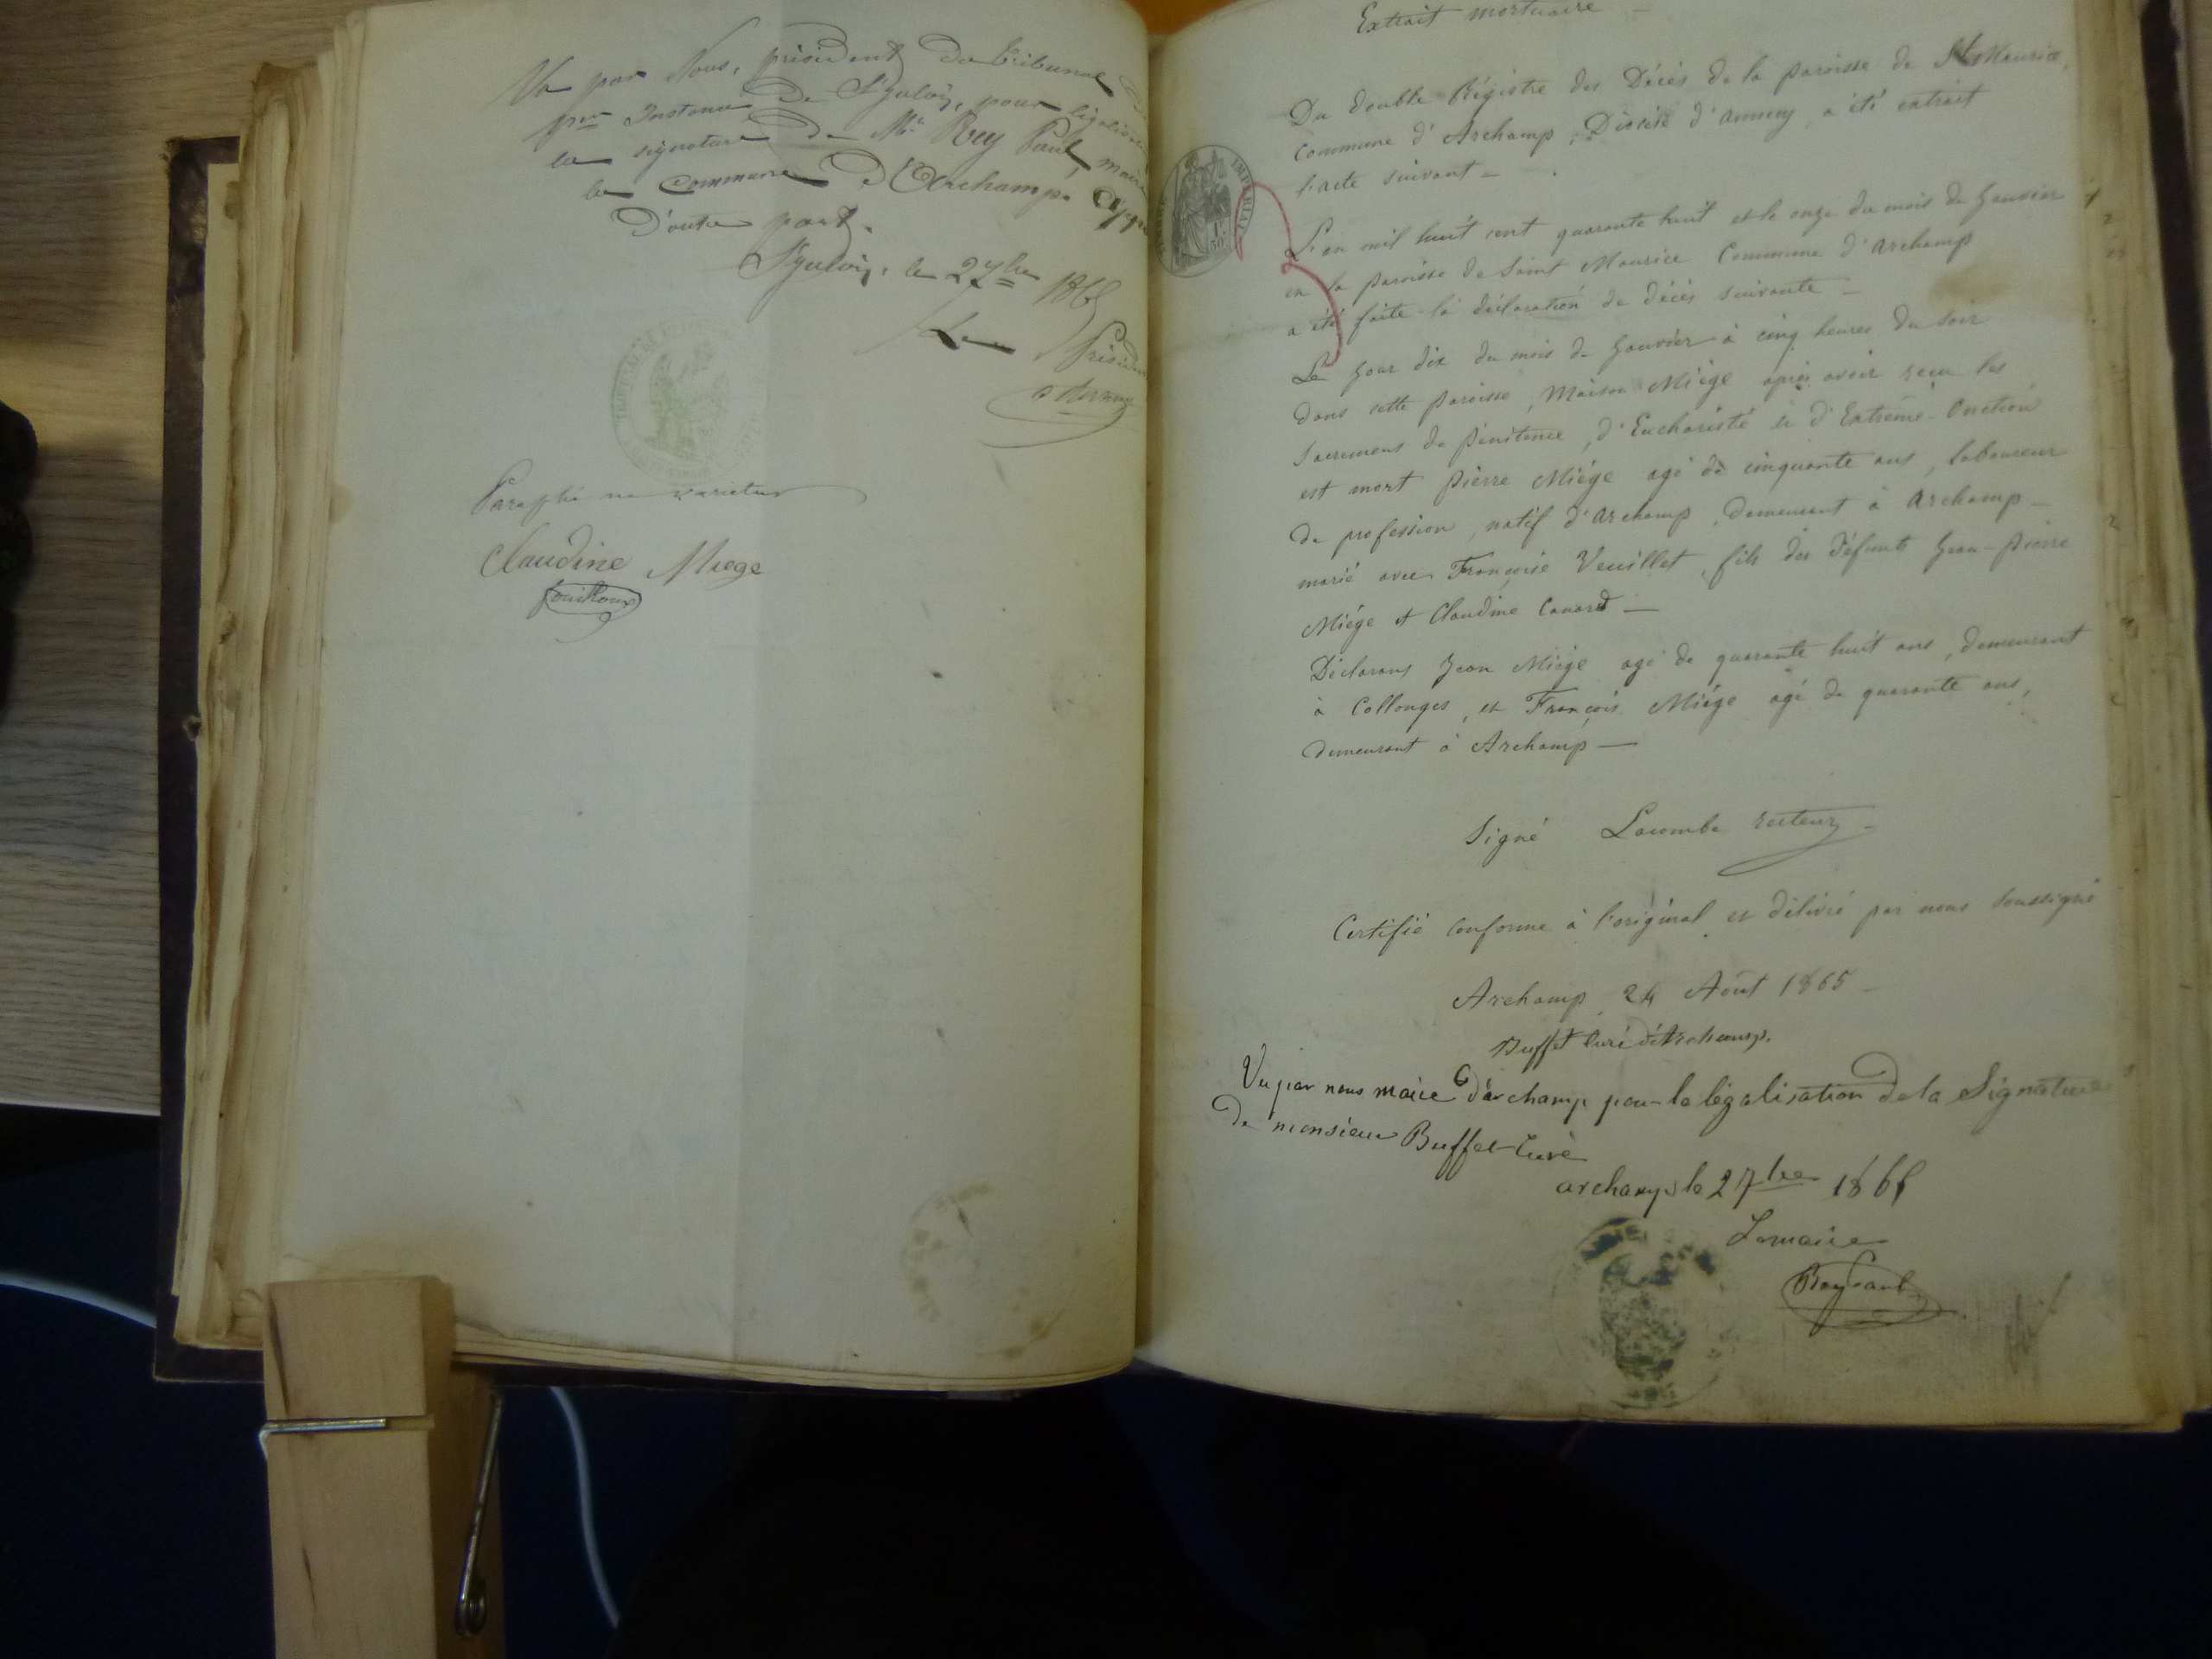 Vu par Nous, président du tribunal de
1ère Instance de St Julien, pour légaliser
la signature de Mr Rey Paul, maire
la commune d'Archamp. Appo
d'autre part.
St Julien, le 2 7bre 1865
Le Président
Paraphé ne varietur
Claudine Miege
Extrait mortuaire —
Du double Régistre des Décès de la paroisse de St Maurice,
Commune d'Archamp, Diocèse d'Annecy, a été extrait
l'acte suivant —
IMPERIAL
1F
50
L'an mil huit cent quarante huit et le onze du mois de Janvier
en la paroisse de Saint Maurice Commune d'Archamp
a été faite la déclaration de décès suivante —
Le Jour dix du mois de Janvier à cinq heures du soir
dans cette paroisse, Maison Miége après avoir reçu les
Sacremens de pénitence, d'Eucharistie et d'Extrême-Onction
est mort pierre Miége agé de cinquante ans, laboureur
de profession, natif d'Archamp, demeurant à Archamp —
marié avec Françoise Veuillet, fils des défunts Jean-pierre
Miége et Claudine Canard —
Déclarans Jean Miége agé de quarante huit ans, demeurant
à Collonges, et François Miége agé de quarante ans,
demeurant à Archamp —
Signé Lacombe recteur —
Certifié conforme à l'original et délivré par nous soussigné
Archamp 24 Août 1865 —
Buffet Curé d'Archamp.
Vu par nous maire d'archamp pour la légalisation de la Signature
de monsieur Buffet Curé
archamp le 2 7bre 1865
Le maire
Rey Paul